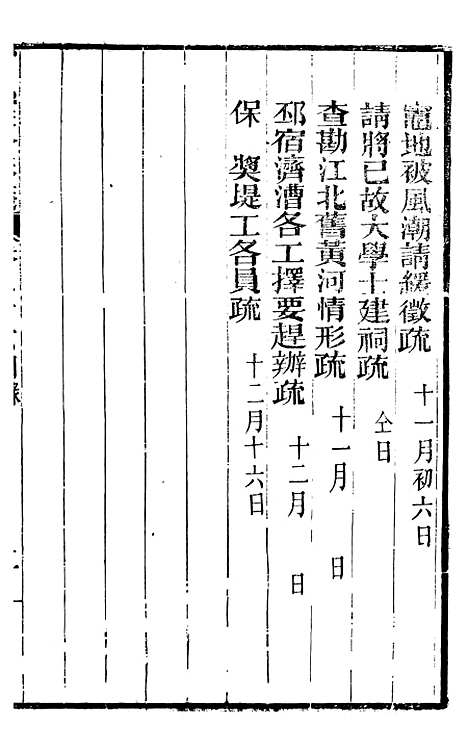 竈地被風潮請緩徵疏 十一月初六日
請將已故大學士建祠疏 仝日
查勘江北舊黃河情形疏 十一月 日
邳宿濟漕各工擇要趕辦疏 十二月 日
保 奬堤工各員疏 十二月十六日